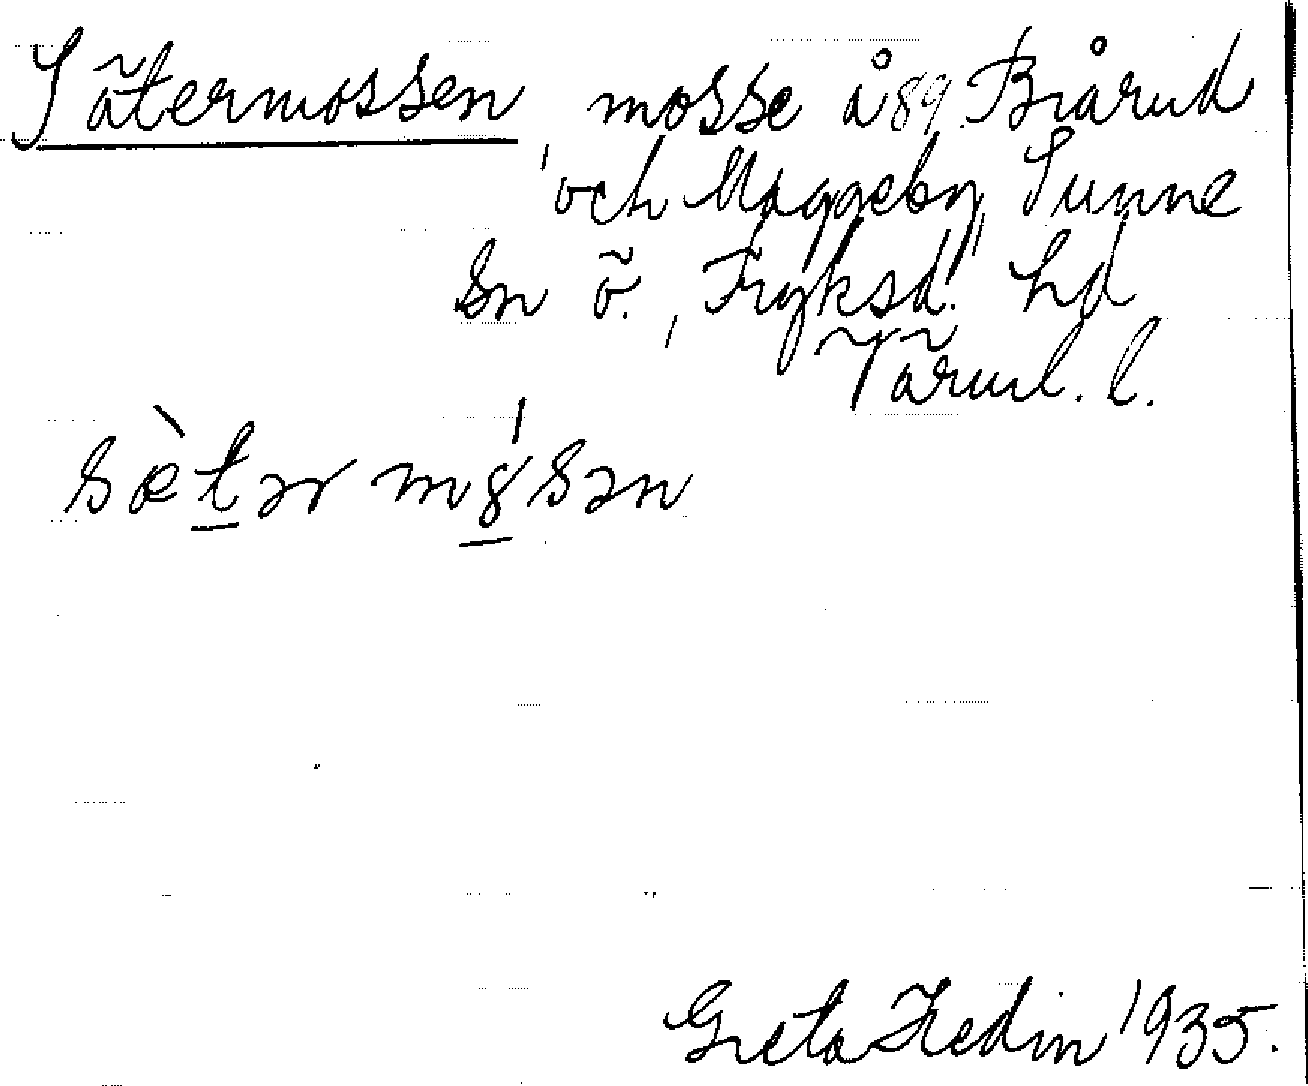 Sätermossen, mosse å 89. Brårud
och Maggeby, Sunne
sn ö., Fryksd. hd
Värml. l.
sæ̀tər mósən
Greta Hedin 1935.